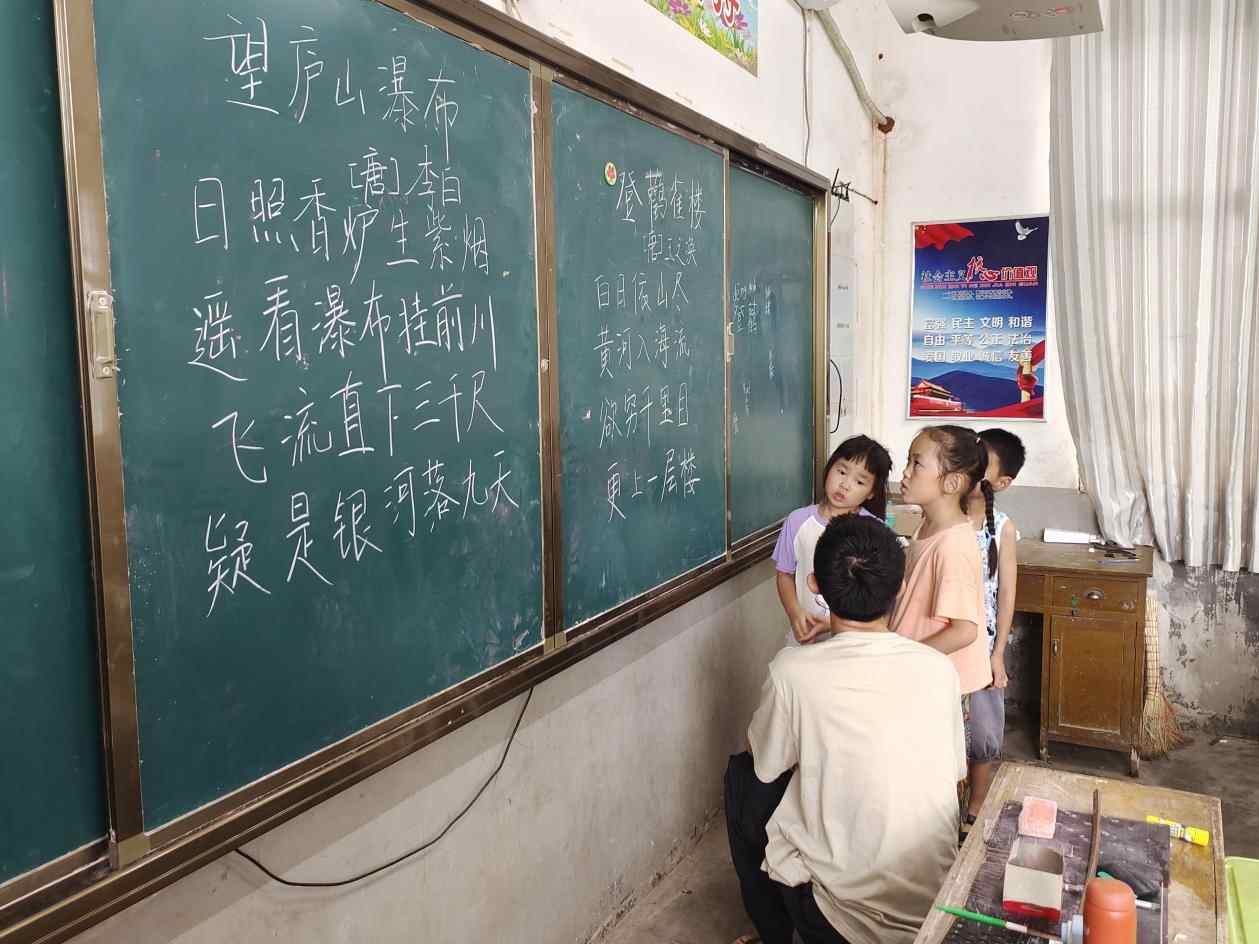 望庐山瀑布
[唐]李白
日照香炉生紫烟
遥看瀑布挂前川
飞流直下三千尺
疑是银河落九天
登鸛雀楼
[唐]王之涣
白日依山尽
黄河入海流
欲穷千里目
更上一层楼
社会主义核心价值观
富强 民主 文明 和谐
自由 平等 公正 法治
爱国 敬业 诚信 友善